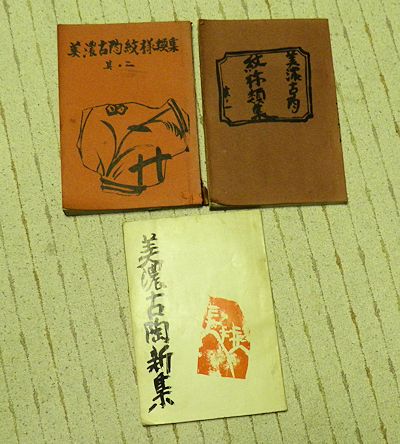 美濃古陶紋様類集
其・二
美濃古陶
紋様類集
其・一
美濃古陶新集